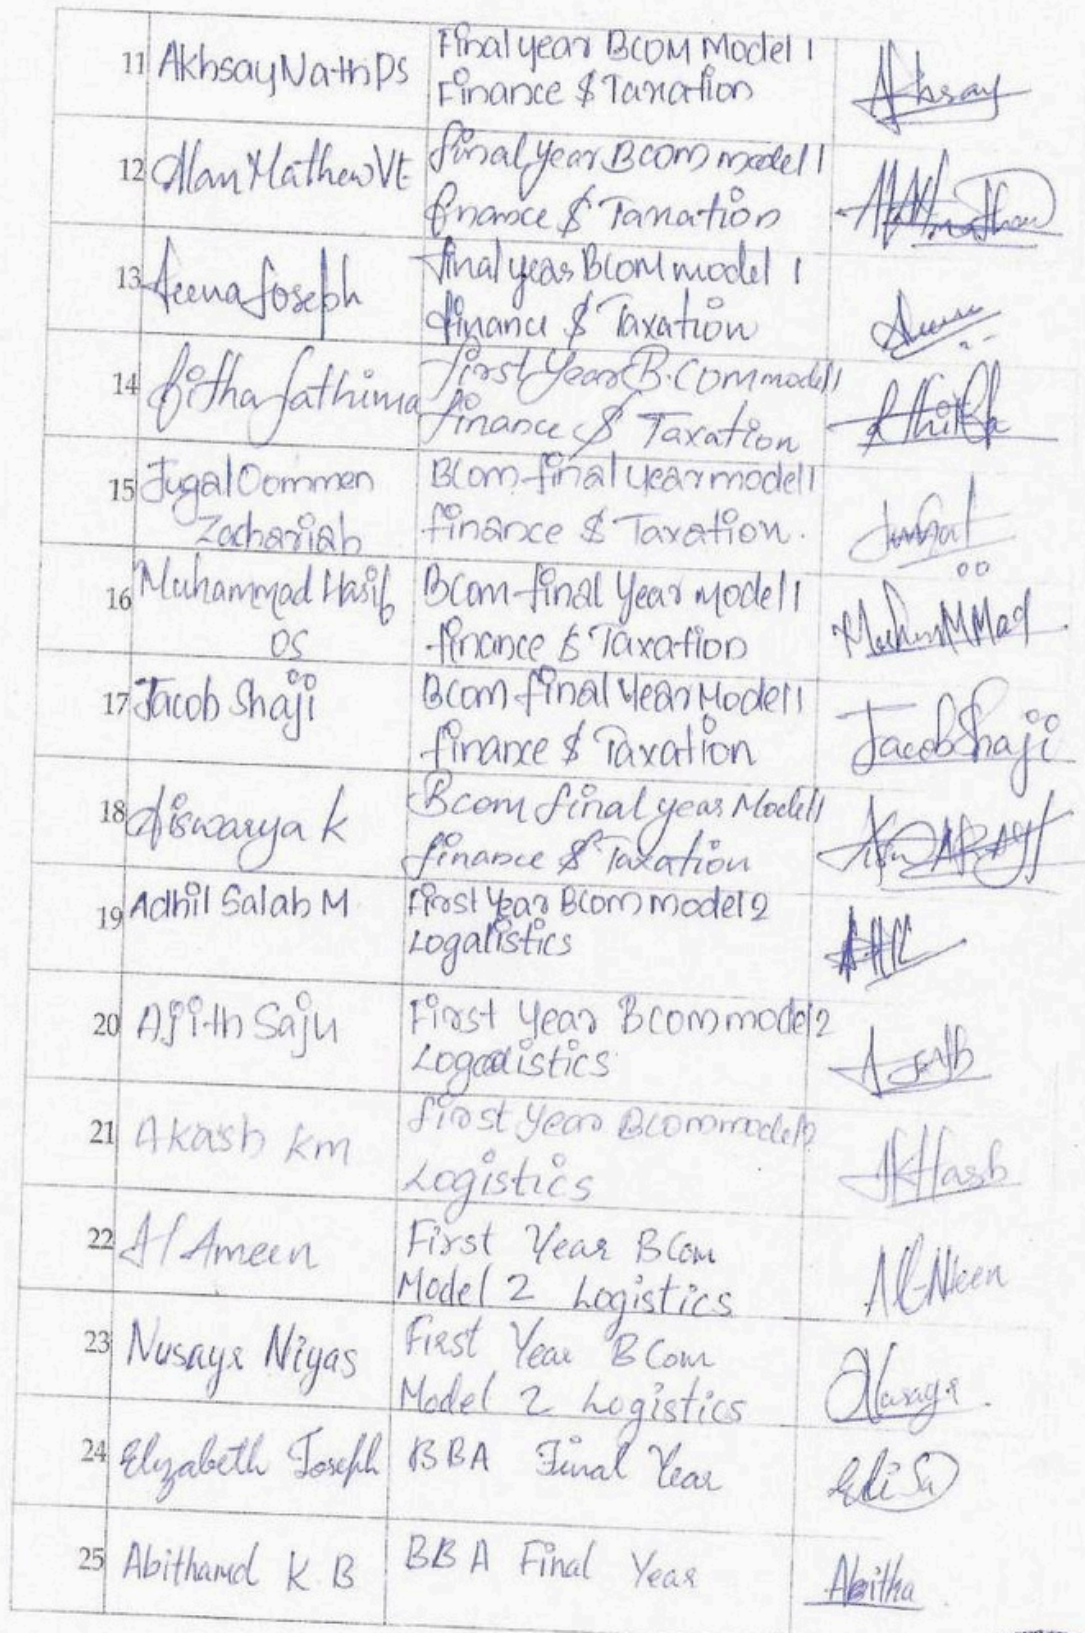 11 Akhsay Nath Ps Final year BCOM Model 1
Finance $ Taxation Akhsay
12 Alan Mathew Vt final year BCOM model 1
finance $ Taxation
13 Aeena Joseph final year BCOM model 1
finance $ Taxation
14 fitha fathima first Year B.Com model 1
finance $ Taxation
15 Jugal Oommen BCom final year model 1
Zachariah finance $ Taxation. Jugal
16 Muhammad Hasif BCom final Year model 1
OS finance $ Taxation MuhamMMad
17 Jacob Shaji Bcom final Year Model 1
finance $ Taxation Jacob Shaji
18 Aiswarya K Bcom final year Model 1
finance $ Taxation
19 Adhil Salah M First Year BCom model 2
Logalistics
20 Ajith Saju First Year BCom model 2
Logadistics
21 Akash Km first Year BCom model 2
Logistics AKHash
22 Al Ameen First Year BCom
Model 2 Logistics
23 Nusayr Niyas First Year BCom
Model 2 Logistics Nusayr
24 Elizabeth Joseph BBA Final Year
25 Abithamol K B BBA Final Year Abitha